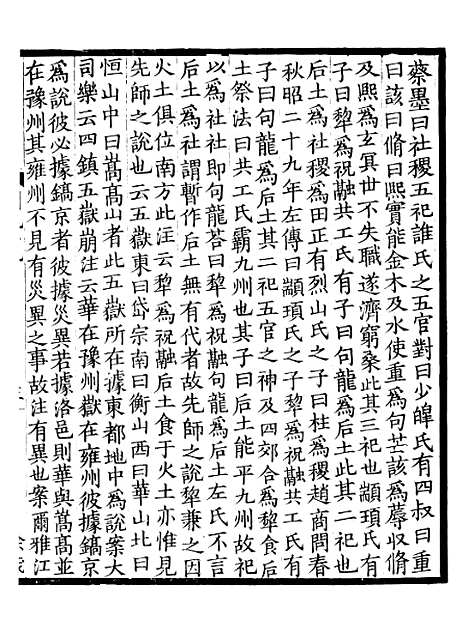 蔡墨曰社稷五祀誰氏之五官對曰少皥氏有四叔曰重
曰該曰脩曰熙實能金木及水使重爲句芒該爲蓐収脩
及熙爲玄冥世不失職遂濟窮桑此其三祀也顓頊氏有
子曰犂爲祝融共工氏有子曰句龍爲后土此其二祀也
后土爲社稷爲田正有烈山氏之子曰柱爲稷趙商問春
秋昭二十九年左傳曰顓頊氏之子犂爲祝融共工氏有
子曰句龍爲后土其二祀五官之神及四郊合爲犂食后
土祭法曰共工氏霸九州也其子曰后土能平九州故祀
以爲社社即句龍荅曰犂爲祝融句龍爲后土左氏不言
后土爲社謂暫作后土無有代者故先師之說犂兼之因
火土俱位南方此注云犂爲祝融后土食于火土亦惟見
先師之說也云五嶽東曰岱宗南曰衡山西曰華山北曰
恒山中曰嵩髙山者此五嶽所在據東都地中爲說案大
司樂云四鎮五嶽崩注云華在豫州嶽在雍州彼據鎬京
爲說彼必據鎬京者彼據災異若據洛邑則華與嵩髙並
在豫州其雍州不見有災異之事故注有異也案爾雅江